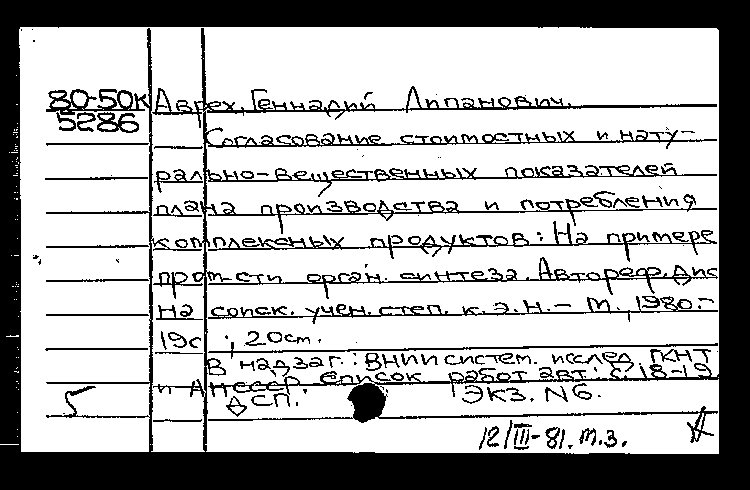 80-50к Аврех, Геннадий Липанович.
5286
Согласование стоимостных и нату-
рально-вещественных показателей
плана производства и потребления
комплексных продуктов: На примере
пром-сти орган. синтеза. Автореф. дис
на соиск. учен. степ. к. э. н. - М., 1980.-
19с ; 20см.
В надзаг.: ВНИИ систем. исслед. ГКНТ
и АН СССР. Список работ авт.: с. 18-19
5 ДСП. Экз. N6.
12/III-81. т.з.